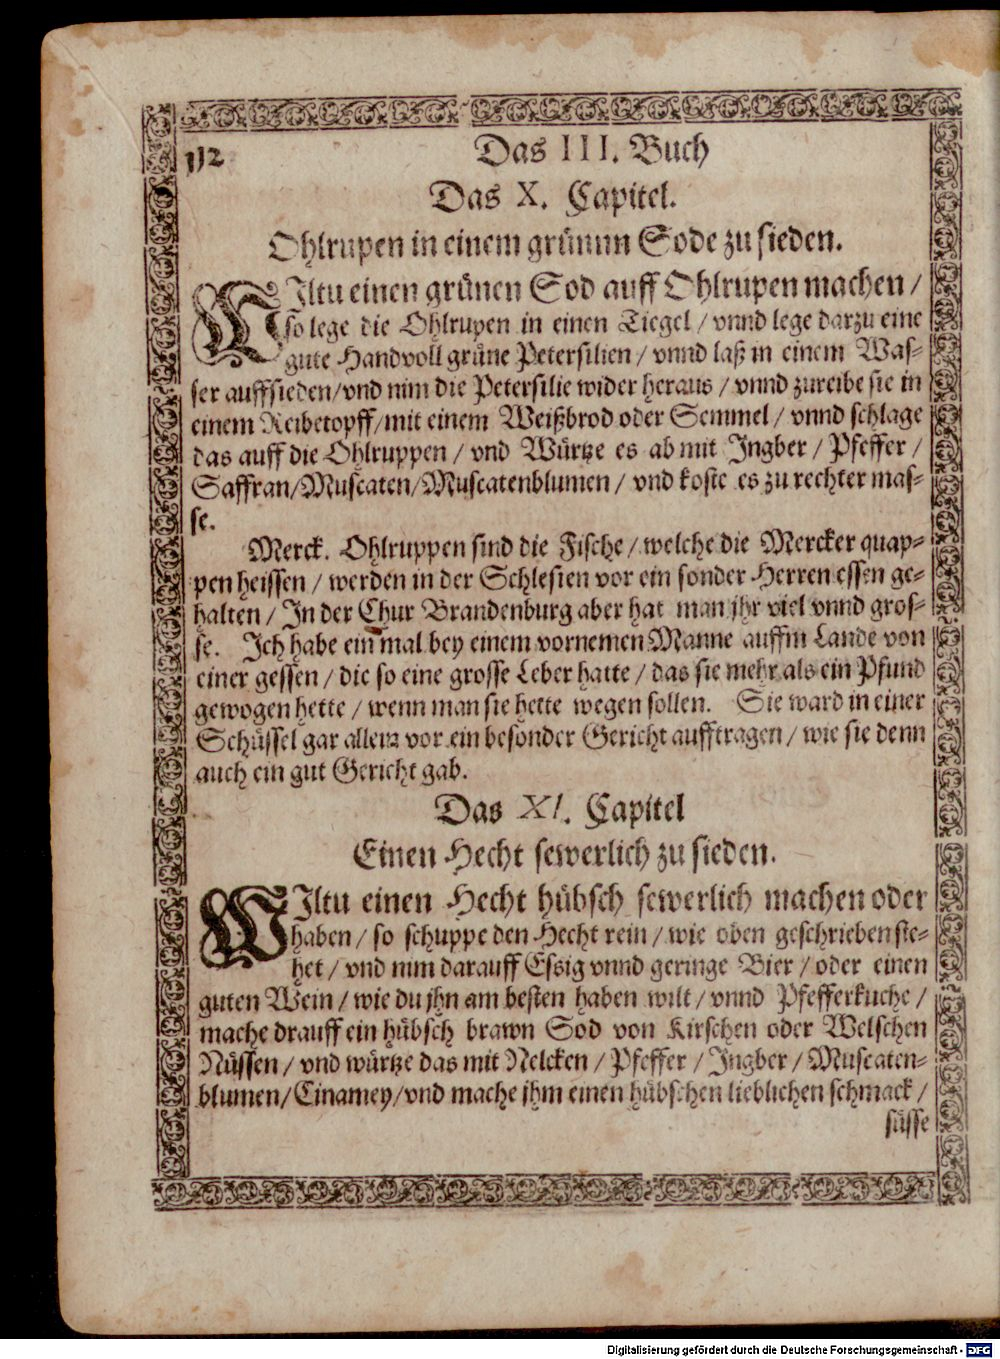 112
Das III. Buch
Das X. Capitel.
Ohlrupen in einem grünnn Sode zu sieden.
WIltu einen grünen Sod auff Ohlrupen machen /
so lege die Ohlrupen in einen Tiegel / vnnd lege darzu eine
gute Handvoll grüne Petersilien / vnnd laß in einem Was-
ser auffsieden/vnd nim die Petersilie wider heraus / vnnd zureibe sie in
einem Reibetopff/mit einem Weißbrod oder Semmel / vnnd schlage
das auff die Ohlruppen / vnd Würtze es ab mit Ingber / Pfeffer /
Saffran/Muscaten/Muscatenblumen / vnd koste es zu rechter mas-
se.
Merck. Ohlruppen sind die Fische / welche die Mercker quap-
pen heissen / werden in der Schlesien vor ein sonder Herren essen ge-
halten / In der Chur Brandenburg aber hat man jhr viel vnnd gros-
se. Ich habe ein mal bey einem vornemen Manne auffm Lande von
einer gessen / die so eine grosse Leber hatte / das sie mehr als ein Pfund
gewogen hette / wenn man sie hette wegen sollen. Sie ward in einer
Schüssel gar allein vor ein besonder Gericht aufftragen / wie sie denn
auch ein gut Gericht gab.
Das XI. Capitel
Einen Hecht sewerlich zu sieden.
WIltu einen Hecht hübsch sewerlich machen oder
haben / so schuppe den Hecht rein / wie oben geschrieben ste-
het / vnd nim darauff Essig vnnd geringe Bier / oder einen
guten Wein / wie du jhn am besten haben wilt / vnnd Pfefferkuche /
mache drauff ein hübsch brawn Sod von Kirschen oder Welschen
Nüssen / vnd würtze das mit Nelcken / Pfeffer / Ingber / Muscaten-
blumen/Cinamey/vnd mache jhm einen hübschen lieblichen schmack /
süsse
Digitalisierung gefördert durch die Deutsche Forschungsgemeinschaft - DFG